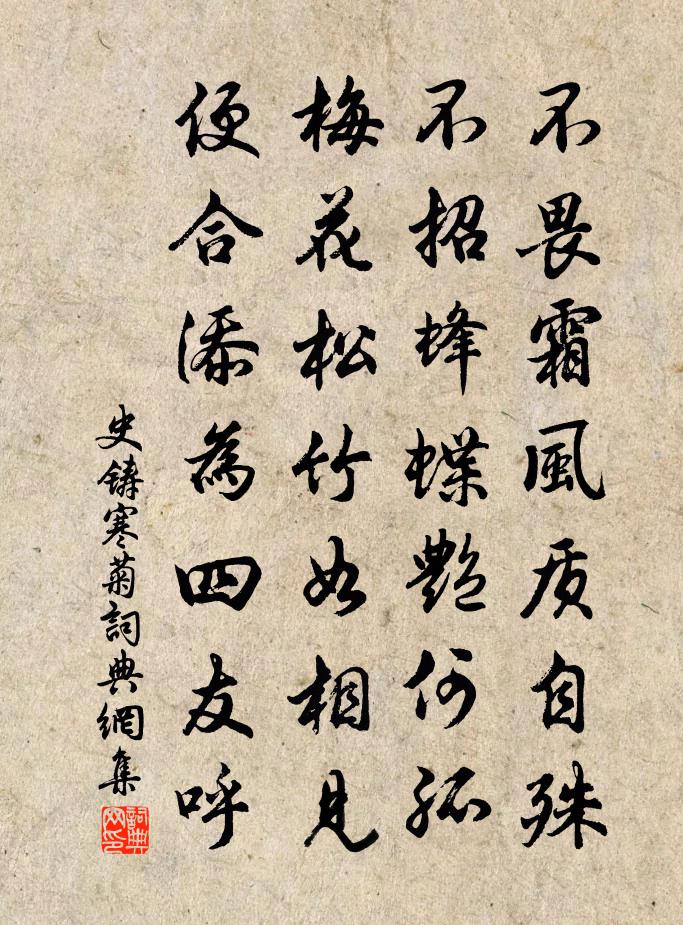 不畏霜風质自殊
不招蜂蝶艷何孤
梅花松竹如相見
便合添為四友呼
史鑄寒菊詞典網集
詞典网印